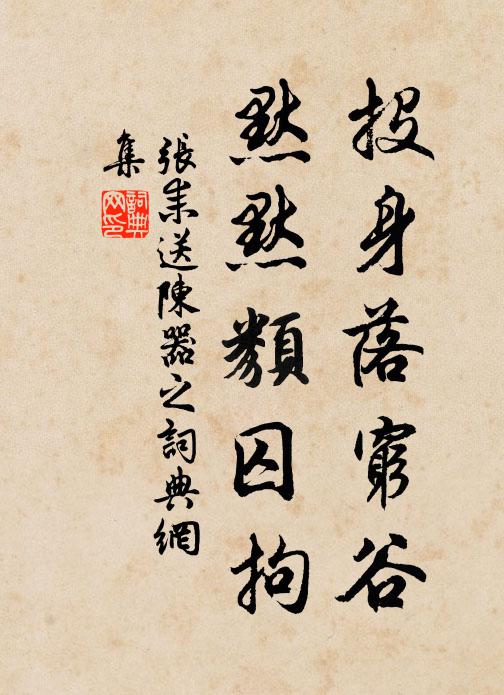 投身落窮谷
默默類囚拘
張耒送陳器之詞典網
集
詞典
網印